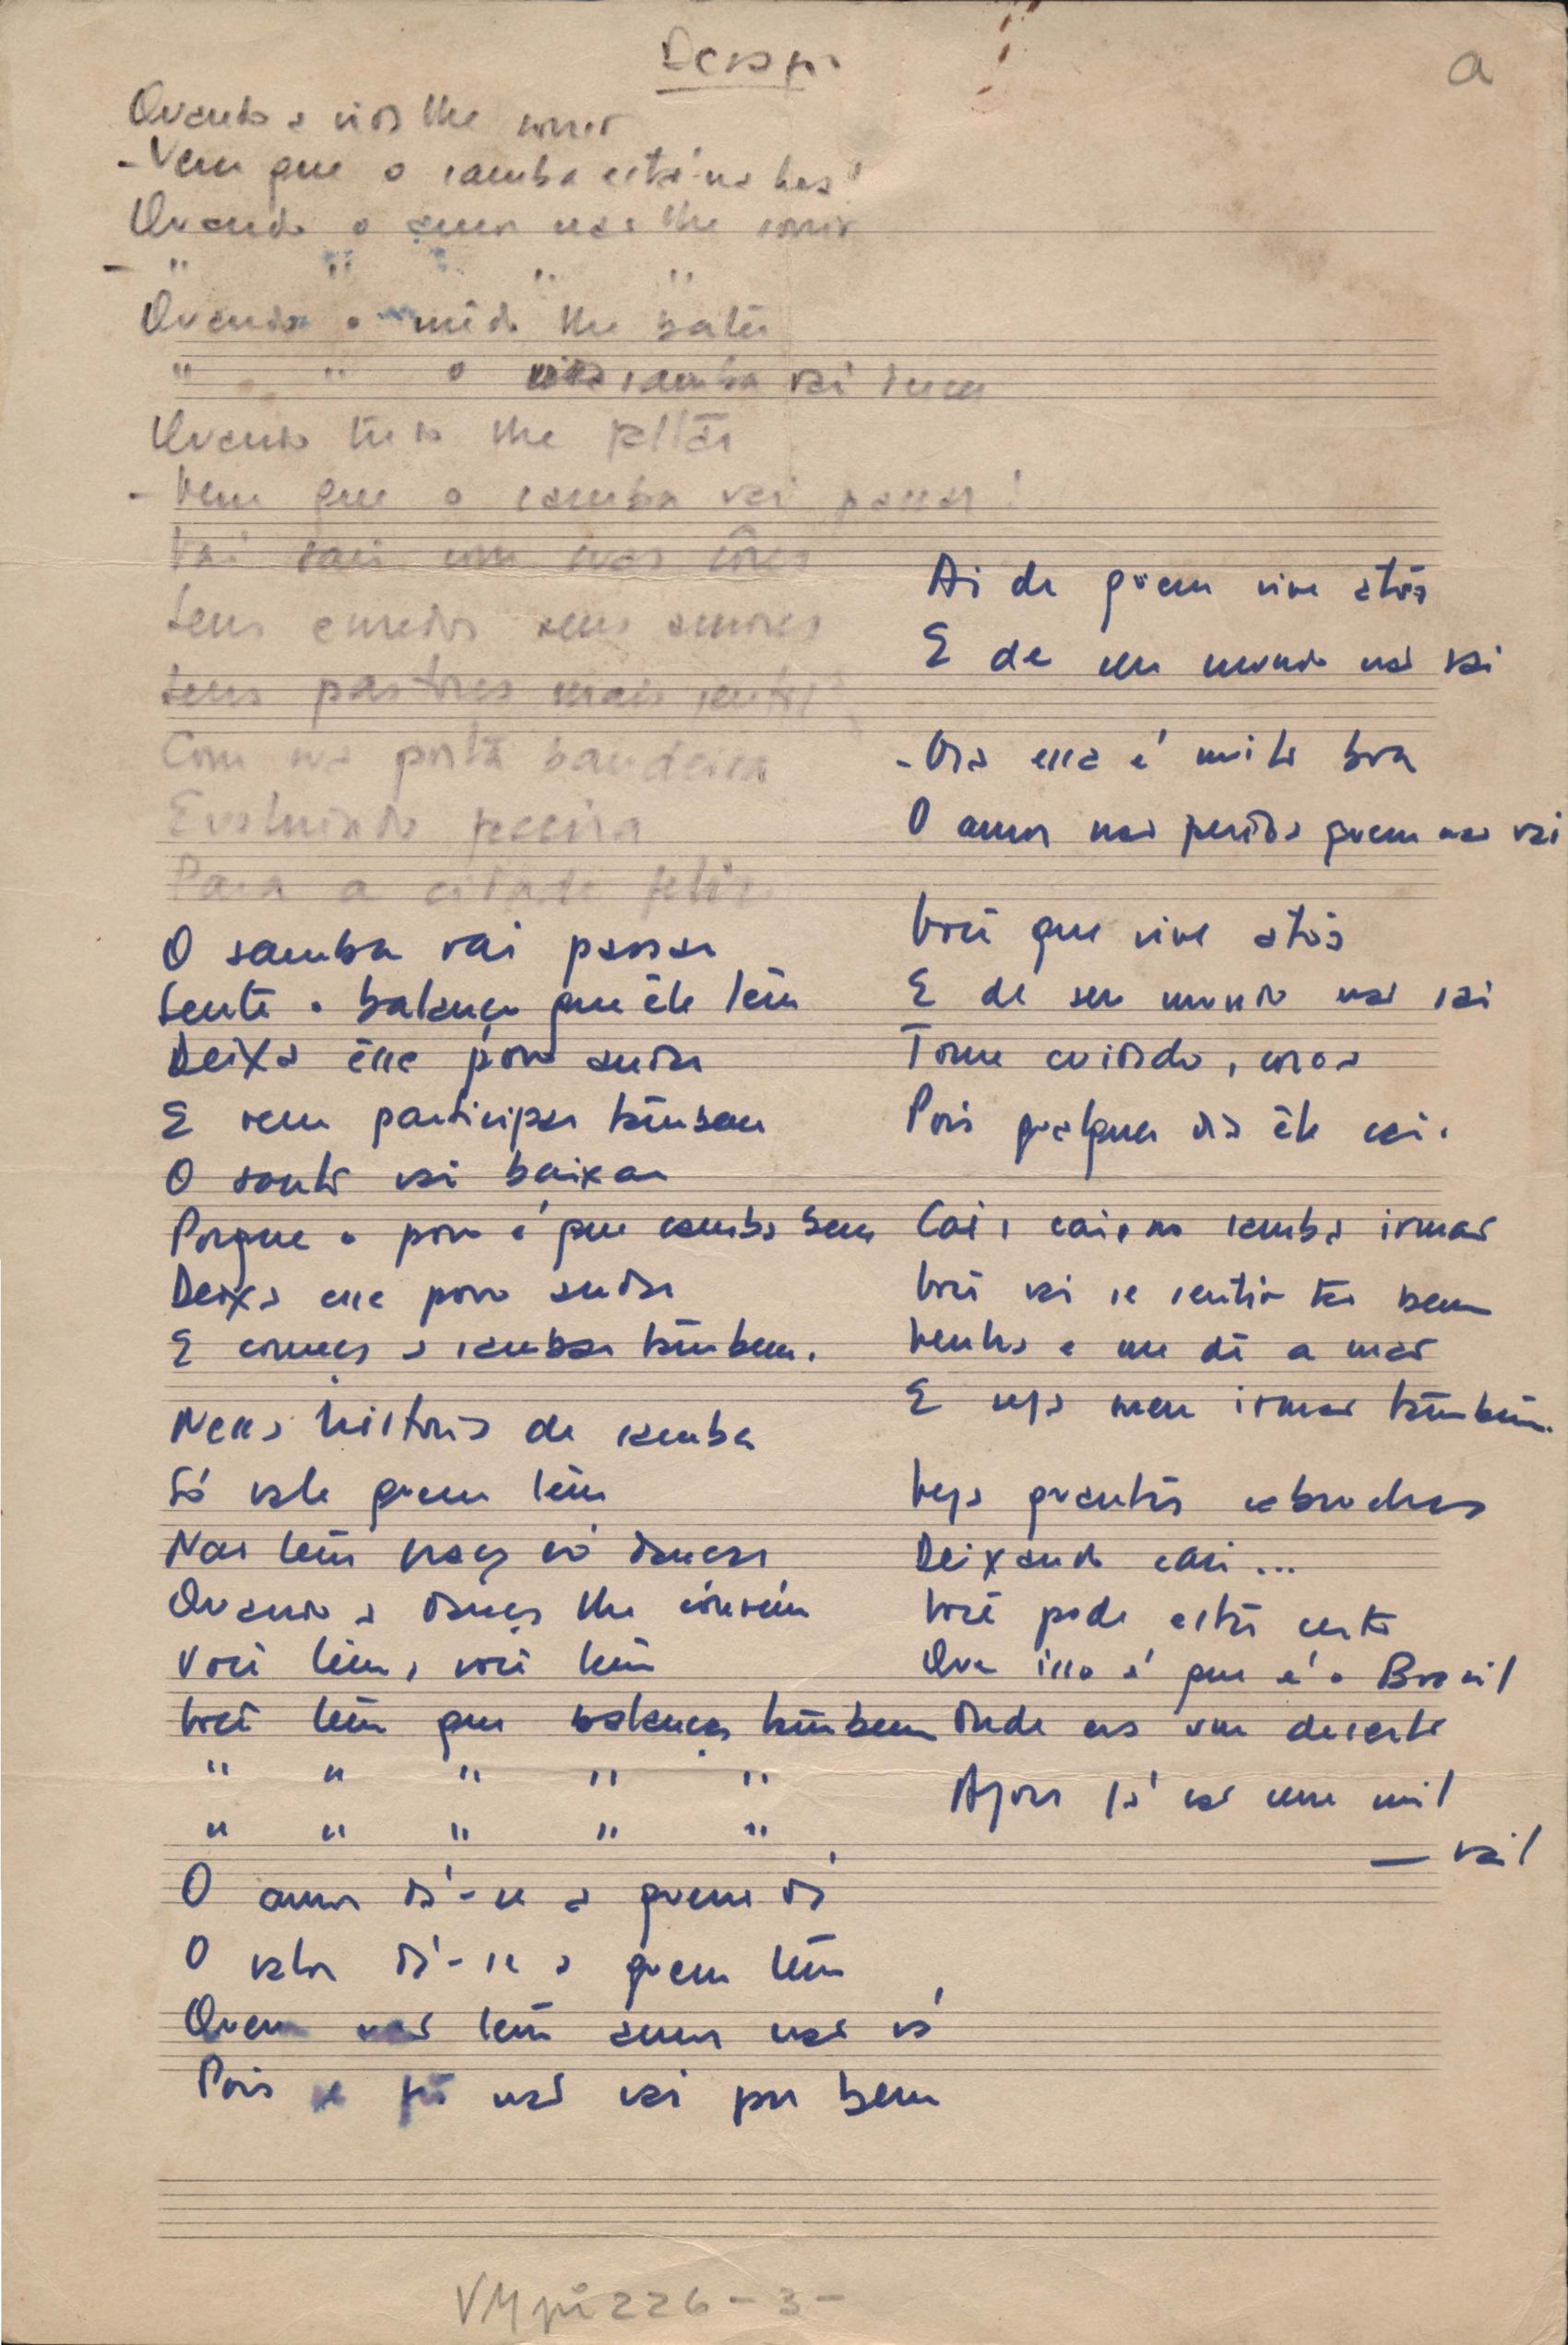 a
Quando a vida lhe sorrir
- Vem que o samba está na hora!
Quando o amor não lhe sorrir
- " " " " "
Quando o mêdo lhe bater
" " o samba vai
Quando tudo lhe faltar
- Vem que o samba vai passar!
Vai sair com suas côres
Seus enredos seus amores
Seus pastores mais gentis
Com sua porta bandeira
Evoluindo faceira
Para a cidade feliz
O samba vai passar
Sente o balanço que êle têm
Deixa êsse povo andar
E vem participar também
O santo vai baixar
Porque o povo é que samba bem
Deixa esse povo andar
E começa a sambar também.
Nessa história de samba
Só vale quem têm
Não têm graça só dançar
Quando a dança lhe convém
Você têm, você têm
Você têm que balançar também
" " " " "
" " " " "
O amor dá-se a quem dá
O valor dá-se a quem têm
Quem não têm amor não vá
Pois se fôr não vai por bem
Ai de quem vive atrás
E de seu mundo não sai
- Ora essa é muito boa
O amor não perdoa quem não vai
Você que vive atrás
E de seu mundo não sai
Tome cuidado, coroa
Pois qualquer dia êle cai.
Cai, cai no samba irmão
Você vai se sentir tão bem
Venha e me dê a mão
E seja meu irmão também.
Veja quantas cabrochas
Deixando cair...
Você pode estar certo
Que isso é que é o Brasil
Onde eu vou decerto
Agora já são cem mil